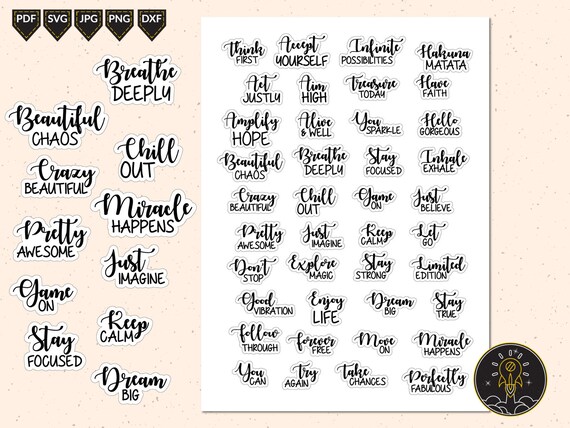 PDF SVG JPG PNG DXF
Breathe
DEEPLY
Beautiful
CHAOS
Chill
OUT
Crazy
BEAUTIFUL
Miracle
HAPPENS
Pretty
AWESOME
Just
IMAGINE
Game
ON
Keep
CALM
Stay
FOCUSED
Dream
BIG
Think
FIRST
Accept
YOURSELF
Infinite
POSSIBILITIES
Hakuna
MATATA
Act
JUSTLY
Aim
HIGH
Treasure
TODAY
Have
FAITH
Amplify
HOPE
Alive
& WELL
You
SPARKLE
Hello
GORGEOUS
Beautiful
CHAOS
Breathe
DEEPLY
Stay
FOCUSED
Inhale
EXHALE
Crazy
BEAUTIFUL
Chill
OUT
Game
ON
Just
BELIEVE
Pretty
AWESOME
Just
IMAGINE
Keep
CALM
Let
GO
Don't
STOP
Explore
MAGIC
Stay
STRONG
Limited
EDITION
Good
VIBRATION
Enjoy
LIFE
Dream
BIG
Stay
TRUE
Follow
THROUGH
Forever
FREE
Move
ON
Miracle
HAPPENS
You
CAN
Try
AGAIN
Take
CHANCES
Perfectly
FABULOUS